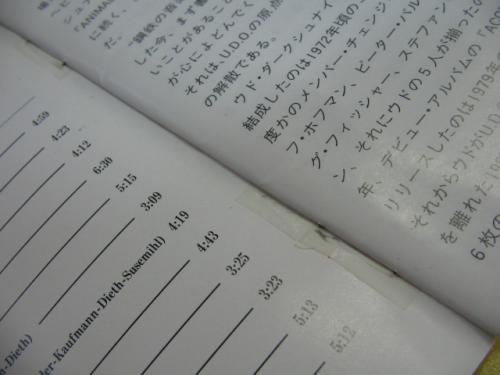 4:59
4:23
4:12
6:30
5:15
3:09
4:19
der-Kaufmann-Dieth-Susemihl) 4:43
3:25
n-Dieth) 3:23
5:13
5:12
シュナ
『ANIMA
に続く、
た。
“鋼鉄の音楽
した今、まず書
いことがあること
が心によどんでく
それは、U.D.O.の原点
の解散である。
ウド・ダークシュナイ
結成したのは1972年頃の
度かのメンバー・チェンジ
フ・ホフマン、ピーター・バル
グ・フィッシャー、ステファン
ン、それにウドの5人が揃ったの
年、デビュー・アルバムの『AC
リリースしたのは1979年
それからウドがU.D.
を離れた
6枚の